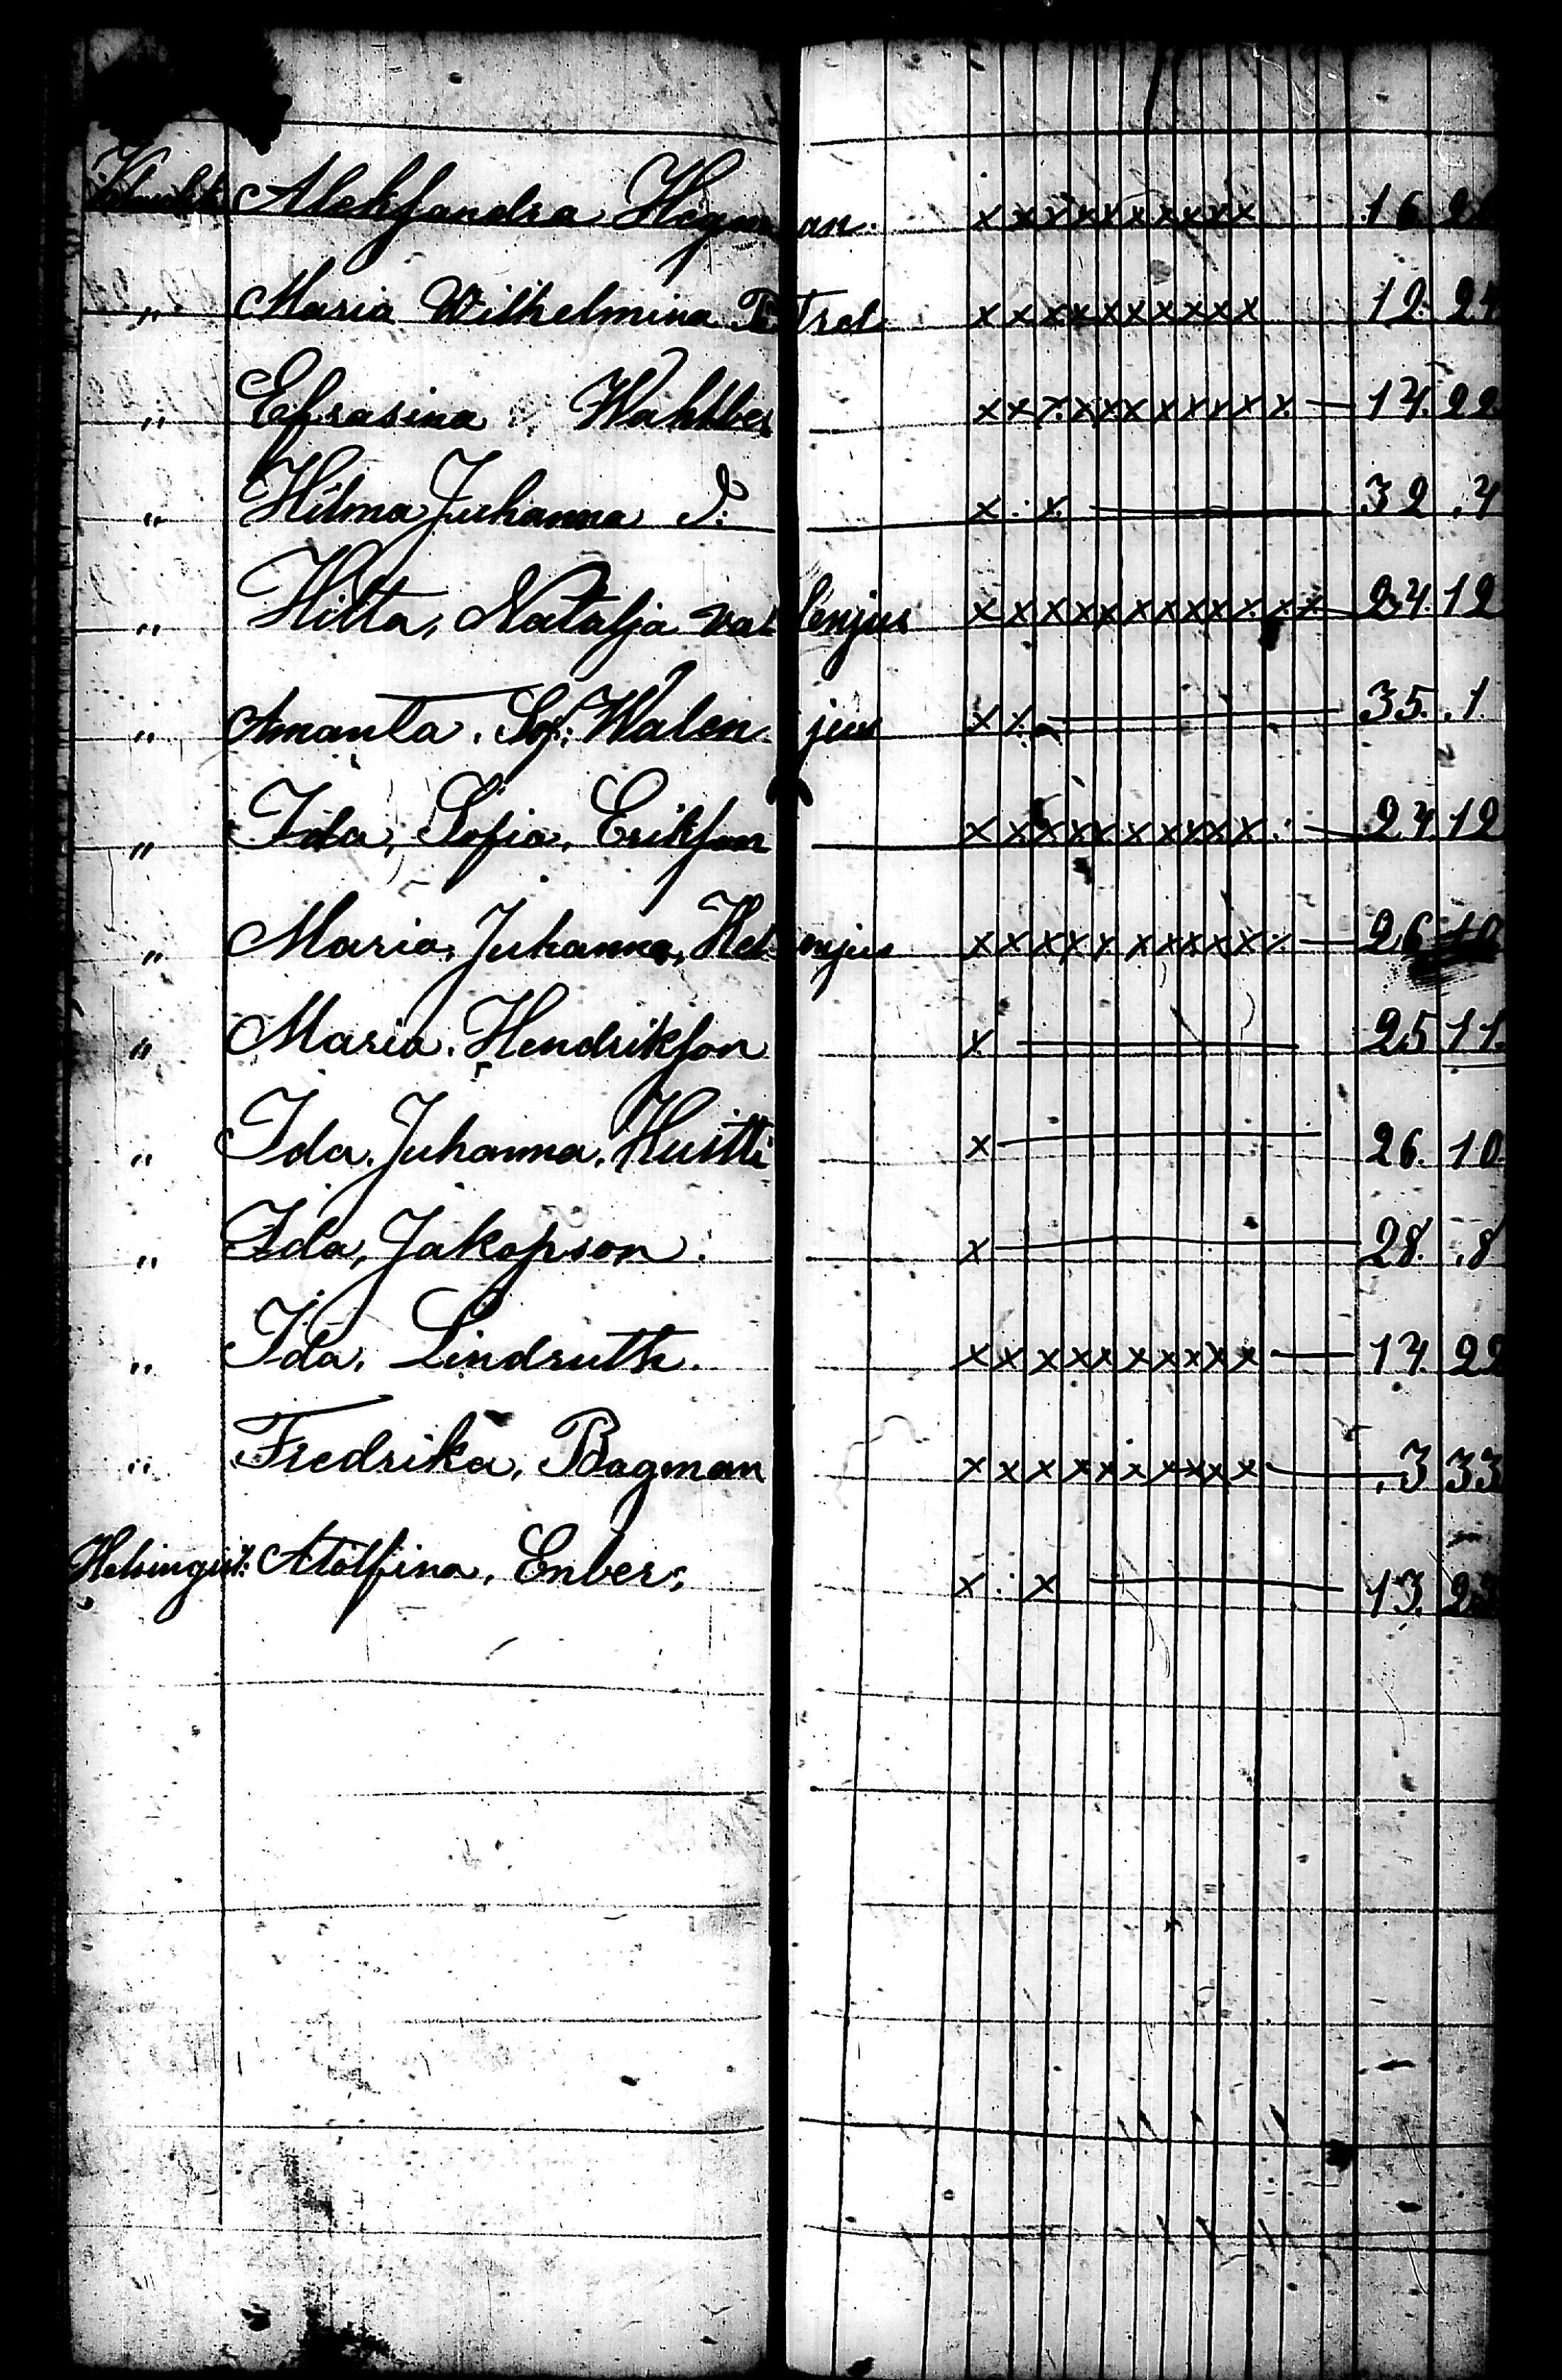 Aleksandra Hegman. x x x x x x x x x x 16
" Maria Wilhelmina x x x x x x x x x x 12. 24
" Efrasina Wahlber x x x x x x x x x x x — 14. 22
" Hilma Juhanna x . x — 32 . 4
" Hilta, Natalja valenjus x x x x x x x x x x x x 24. 12
" Amanta. Sof: Walenjus x x — 35. . 1.
" Ida, Sofia, Erikson x x x x x x x x x x — 24 12
" Maria, Juhanna, x x x x x x x x x x x — 26 10
" Maria. Hendrikson x — 25 11.
" Ida. Juhanna. Huitti x — 26. 10.
" Ida, Jakopson. x — 28. . 8
" Ida. Lindruth. x x x x x x x x x x — 14. 22
" Fredrika, Bagman x x x x x x x x x x — . 3 33
Atolfina, Enber; x . x — 13. 23